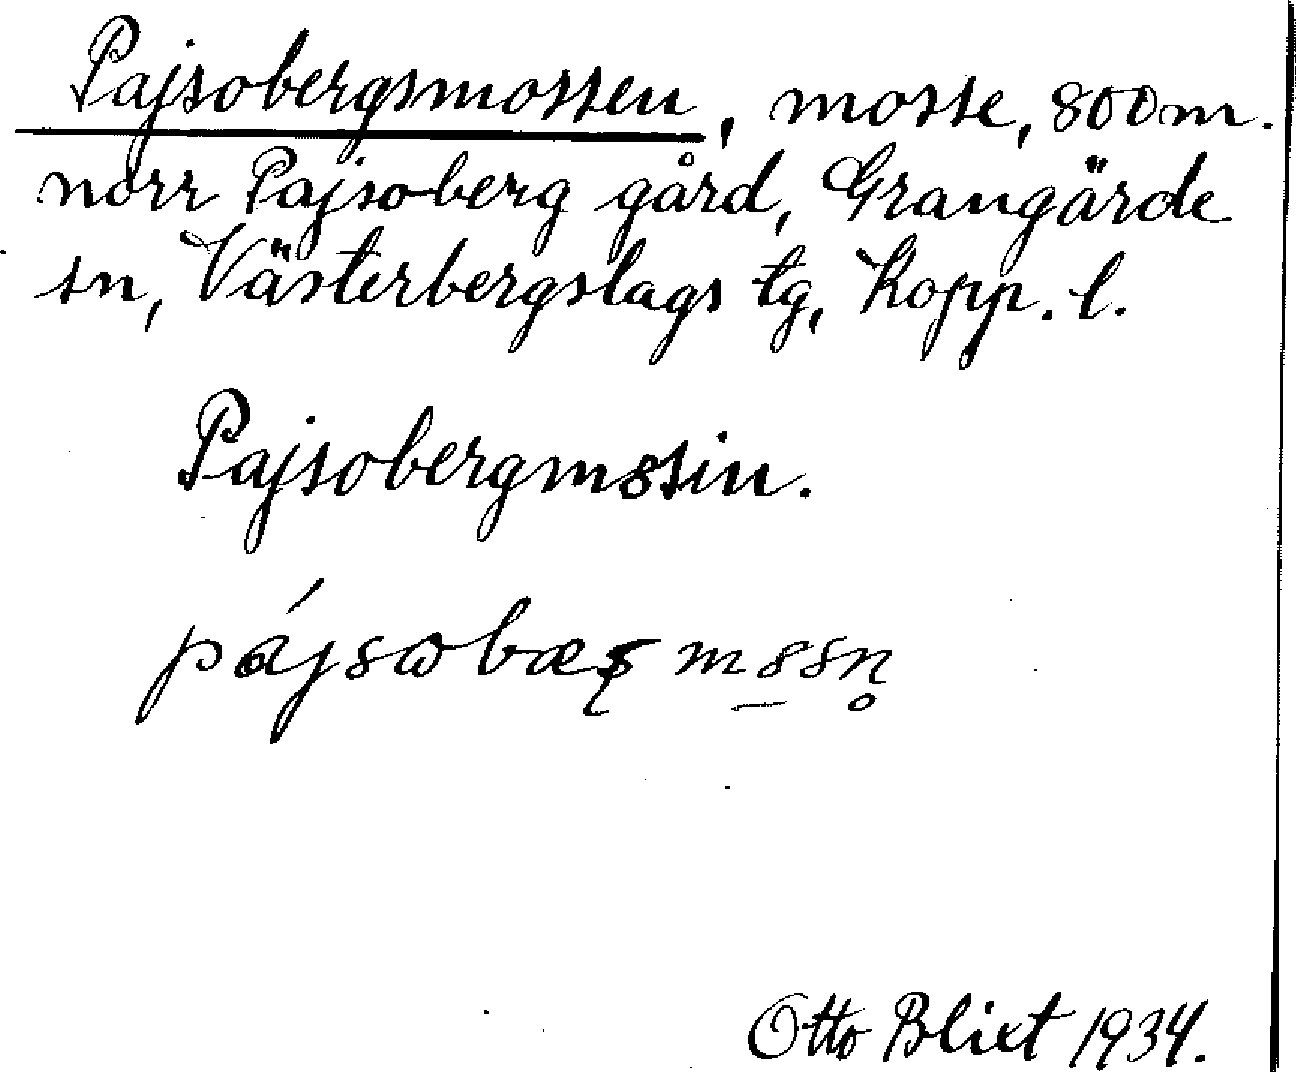 Pajsobergsmossen, mosse, 800 m.
norr Pajsoberg gård, Grangärde
sn, Västerbergslags tg, Kopp. l.
Pajsobergmosin.
Otto Blixt 1934.